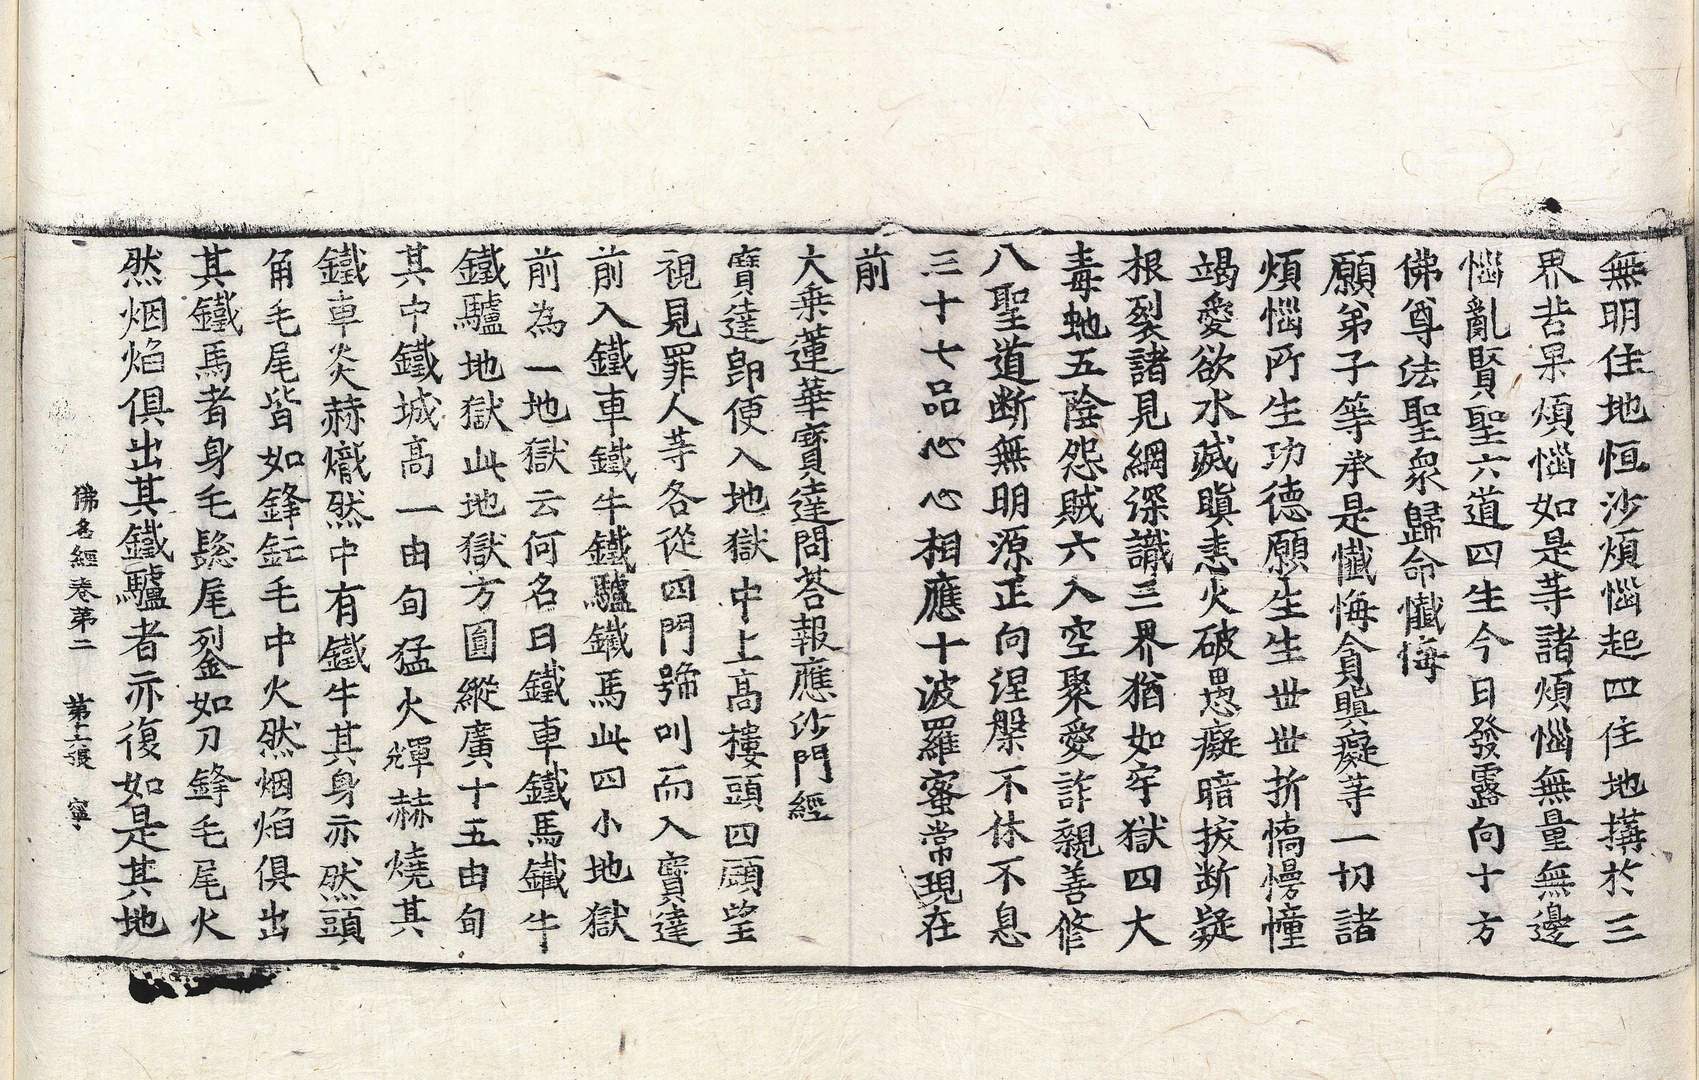 無明住地恒沙煩惱起四住地搆於三
界苦果煩惱如是等諸煩惱無量無邊
惱亂賢聖六道四生今日發露向十方
佛尊法聖衆歸命懺悔
願弟子等承是懺悔貪瞋癡等一切諸
煩惱所生功德願生生世世折憍慢幢
竭愛欲水滅瞋恚火破愚癡暗拔断疑
根裂諸見網深識三界猶如牢獄四大
毒虵五陰怨賊六入空聚愛詐親善修
八聖道断無明源正向涅槃不休不息
三十七品心心相應十波羅蜜常現在
前
大乗蓮華寶達問荅報應沙門經
寶達即便入地獄中上高樓頭四顧望
視見罪人等各從四門號叫而入寶達
前入鐵車鐵牛鐵驢鐵馬此四小地獄
前為一地獄云何名曰鐵車鐵馬鐵牛
鐵驢地獄此地獄方圓縱廣十五由旬
其中鐵城高一由旬猛火輝赫燒其
鐵車炎赫熾然中有鐵牛其身亦然頭
角毛尾皆如鋒鋩毛中火然烟焰俱出
其鐵馬者身毛鬃尾鋫如刀鋒毛尾火
然烟焰俱出其鐵驢者亦復如是其地
佛名經卷第二 第十二張 寧